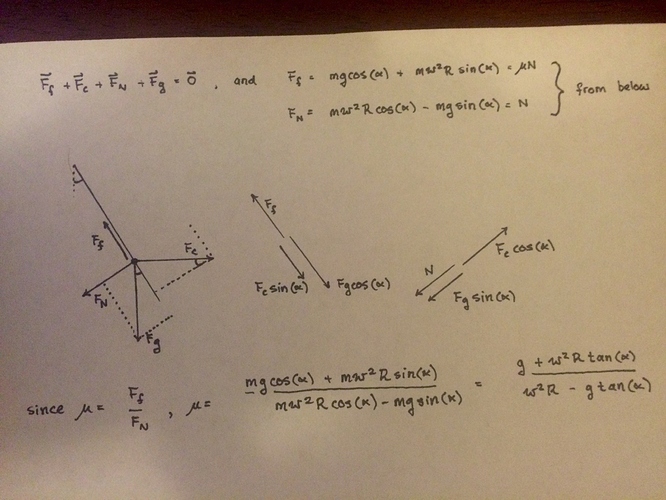 F⃗f + F⃗c + F⃗N + F⃗g = 0⃗ , and Ff = mg cos(α) + mw²R sin(α) = μN
FN = mw²R cos(α) - mg sin(α) = N } from below
Ff
Fc
FN
Fg
Ff
Fc sin(α)
Fg cos(α)
Fc cos(α)
N
Fg sin(α)
since μ = Ff/FN , μ = (mg cos(α) + mw²R sin(α))/(mw²R cos(α) - mg sin(α)) = (g + w²R tan(α))/(w²R - g tan(α))